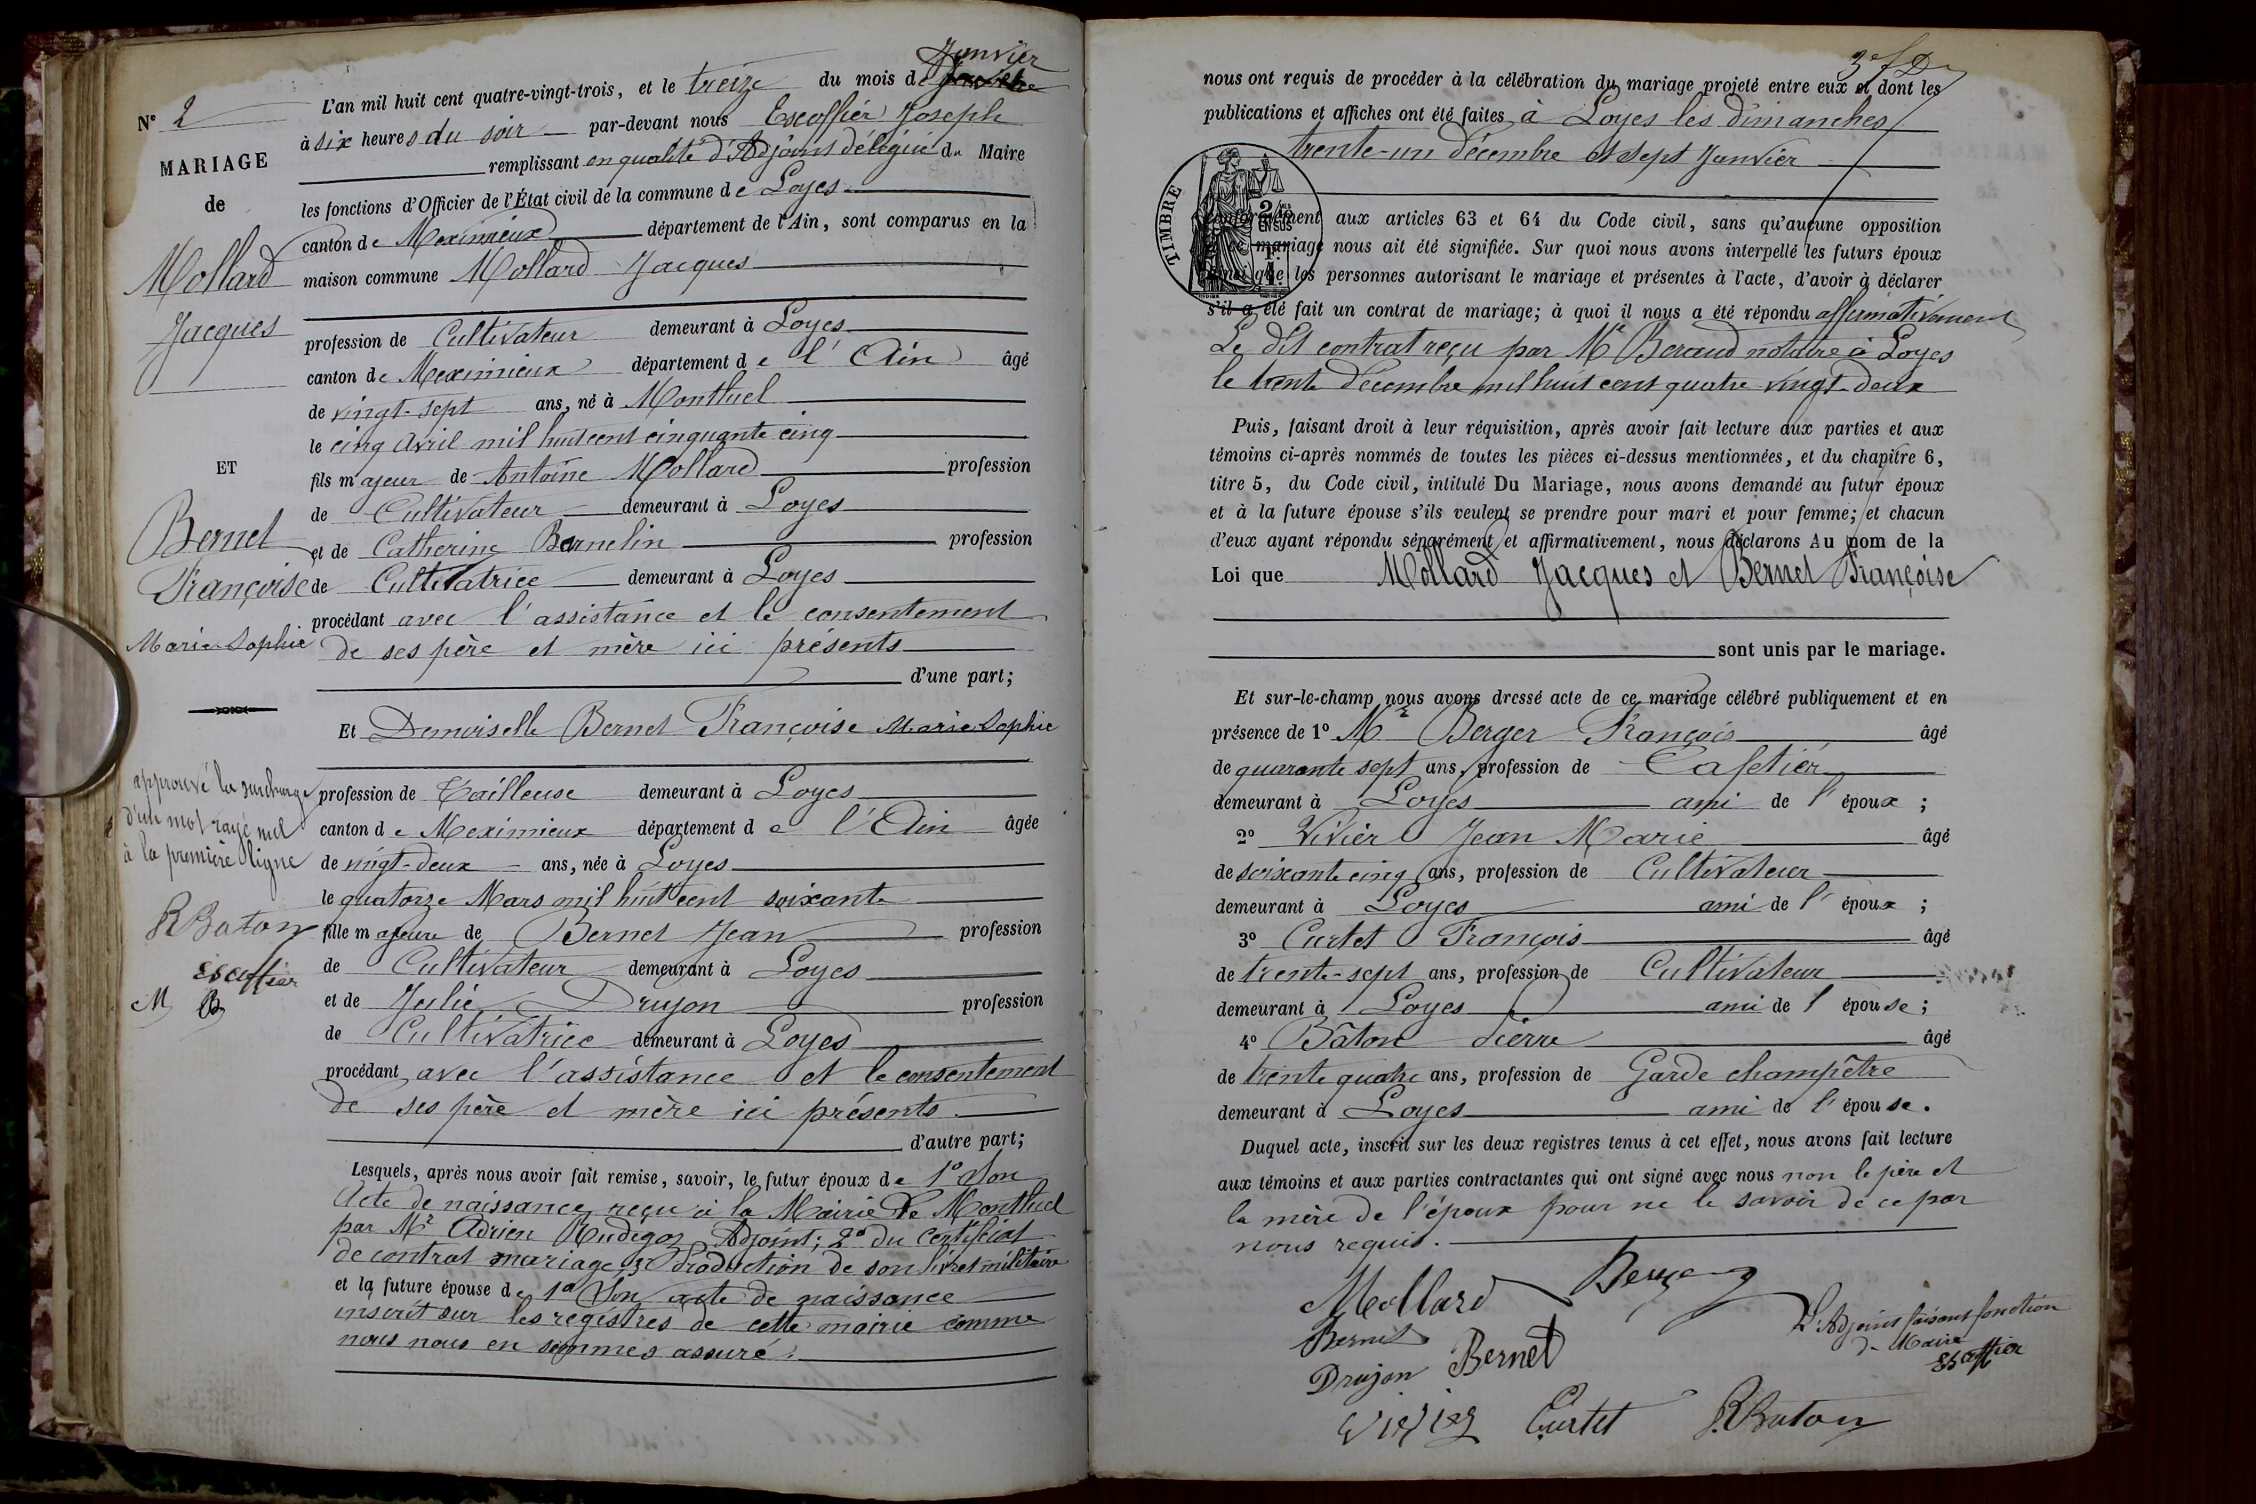 N° 2
MARIAGE
de
Mollard
Jacques
ET
Bernet
Françoise
Marie Sophie
approuvé la surcharge
d'un mot rayé nul
à la première ligne
P Baton
Escoffier
M B
Janvier
L'an mil huit cent quatre-vingt-trois, et le treize du mois de
à six heures du soir par-devant nous Escoffier Joseph
remplissant en qualité d'Adjoint délégué du Maire
les fonctions d'Officier de l'État civil de la commune de Loyes
canton de Meximieux département de l'Ain, sont comparus en la
maison commune Mollard Jacques
profession de Cultivateur demeurant à Loyes
canton de Meximieux département de l'Ain âgé
de vingt-sept ans, né à Montluel
le cinq Avril mil huit cent cinquante cinq
fils majeur de Antoine Mollard profession
de Cultivateur demeurant à Loyes
et de Catherine Bernelin profession
de Cultivatrice demeurant à Loyes
procédant avec l'assistance et le consentement
de ses père et mère ici présents
d'une part;
Et Demoiselle Bernet Françoise Marie Sophie
profession de Tailleuse demeurant à Loyes
canton de Meximieux département de l'Ain âgée
de vingt-deux ans, née à Loyes
le quatorze Mars mil huit cent soixante
fille majeure de Bernet Jean profession
de Cultivateur demeurant à Loyes
et de Julie Drujon profession
de Cultivatrice demeurant à Loyes
procédant avec l'assistance et le consentement
de ses père et mère ici présents
d'autre part;
Lesquels, après nous avoir fait remise, savoir, le futur époux de 1° Son
Acte de naissance reçu à la Mairie de Montluel
par Mr Adrien Adjoint; 2° du Certificat
de contrat mariage, 3° Production de son livret militaire
et la future épouse de 1° Son acte de naissance
inscrit sur les registres de cette mairie comme
nous nous en sommes assuré.
nous ont requis de procéder à la célébration du mariage projeté entre eux et dont les
publications et affiches ont été faites à Loyes les dimanches
trente-un décembre et sept Janvier
TIMBRE
2/10 EN SUS
conformément aux articles 63 et 64 du Code civil, sans qu'aucune opposition
à ce mariage nous ait été signifiée. Sur quoi nous avons interpellé les futurs époux
ainsi que les personnes autorisant le mariage et présentes à l'acte, d'avoir à déclarer
s'il a été fait un contrat de mariage; à quoi il nous a été répondu affirmativement
Le dit contrat reçu par Me Beraud notaire à Loyes
le trente décembre mil huit cent quatre vingt-deux
Puis, faisant droit à leur réquisition, après avoir fait lecture aux parties et aux
témoins ci-après nommés de toutes les pièces ci-dessus mentionnées, et du chapitre 6,
titre 5, du Code civil, intitulé Du Mariage, nous avons demandé au futur époux
et à la future épouse s'ils veulent se prendre pour mari et pour femme; et chacun
d'eux ayant répondu séparément et affirmativement, nous déclarons Au nom de la
Loi que Mollard Jacques et Bernet Françoise
sont unis par le mariage.
Et sur-le-champ nous avons dressé acte de ce mariage célébré publiquement et en
présence de 1° Mr Berger François âgé
de quarante sept ans, profession de Cafetier
demeurant à Loyes ami de l'époux;
2° Vivier Jean Marie âgé
de soixante cinq ans, profession de Cultivateur
demeurant à Loyes ami de l'époux;
3° Curtet François âgé
de trente-sept ans, profession de Cultivateur
demeurant à Loyes ami de l'épouse;
4° Bâton Pierre âgé
de trente quatre ans, profession de Garde champêtre
demeurant à Loyes ami de l'épouse.
Duquel acte, inscrit sur les deux registres tenus à cet effet, nous avons fait lecture
aux témoins et aux parties contractantes qui ont signé avec nous non le père et
la mère de l'époux pour ne le savoir de ce par
nous requis.
Mollard Berger
Bernet
L'Adjoint faisant fonction
de Maire
Escoffier
Drujon Bernet
Vivier Curtet P. Baton